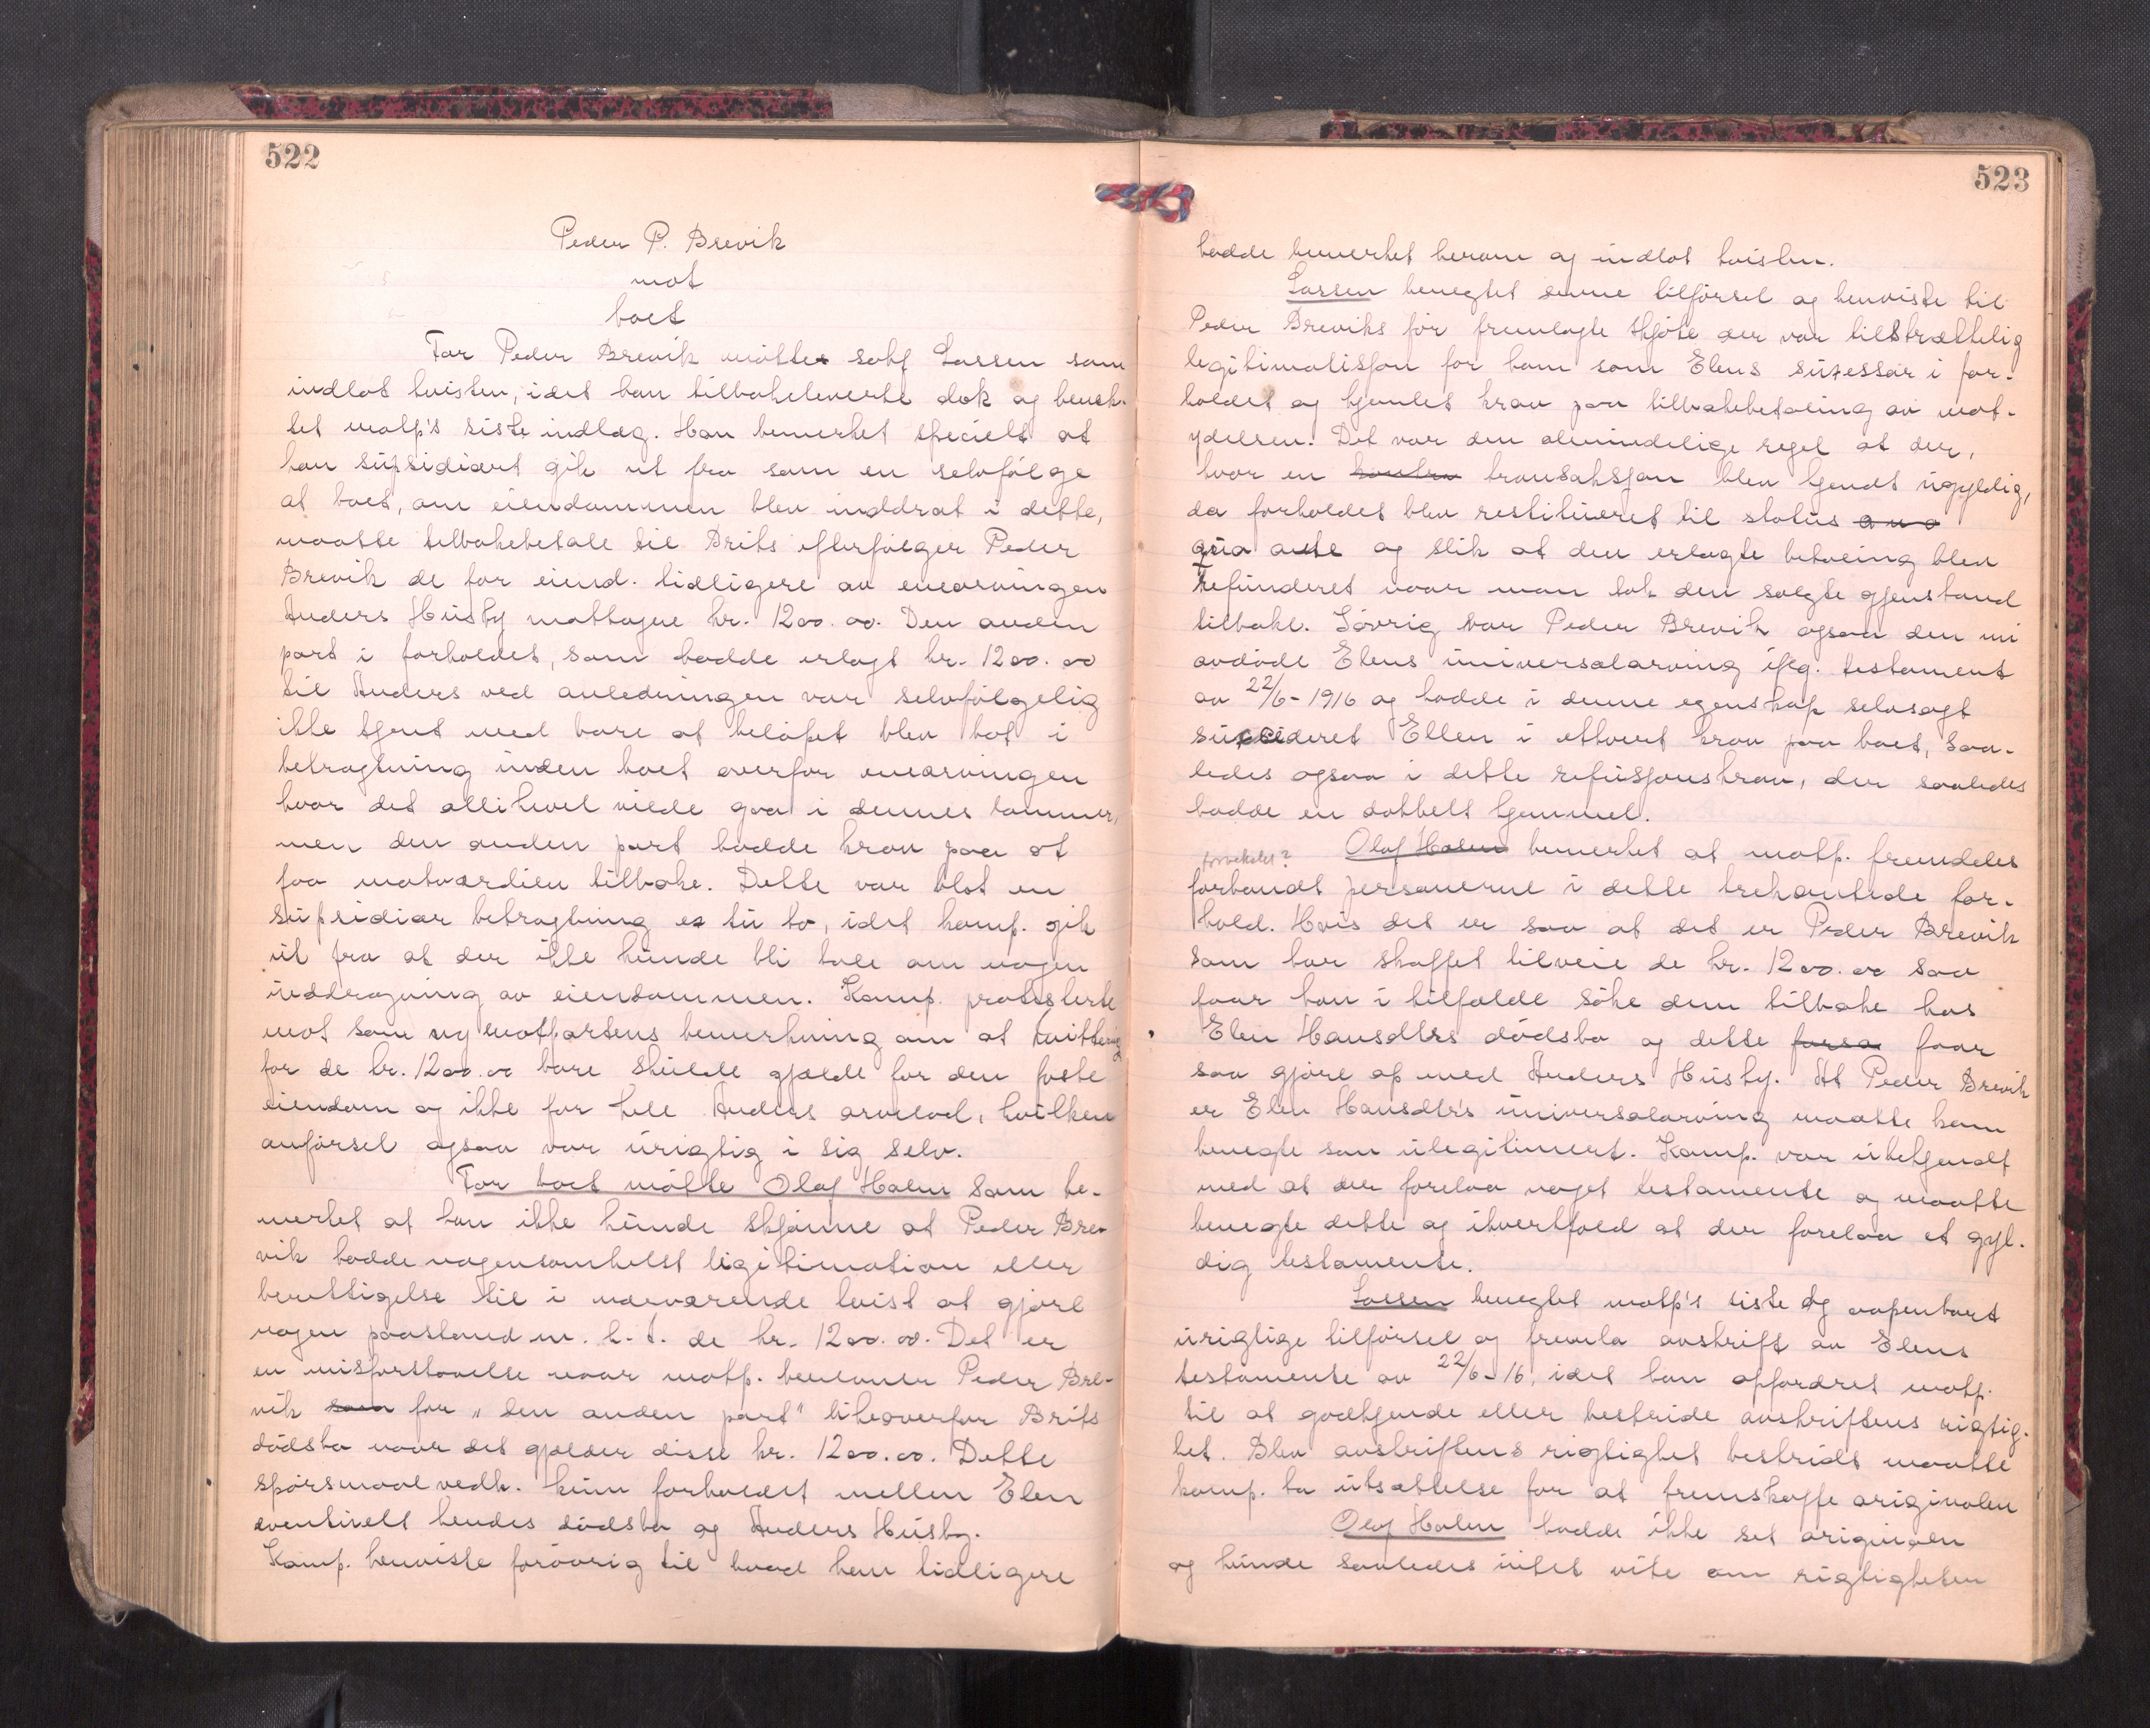 522
Peder P. Brevik
mot
boet
For Peder Brevik møtte sakf Lassen som
indlot tvisten, idet han tilbakeleverte dok og benek-
tet motp's siste indlæg. Han bemerket specielt at
han supsidiært gik ut fra som en selvfölge
at boet, om eiendommen blev inddrat i dette,
maatte tilbakebetale til Brits efterfølger Peder
Brevik de for eiend. tidligere av enearvingen
Anders Husby mottagne kr. 1200.00. Den anden
part i forholdet, som hadde erlagt kr. 1200.00
til Anders ved anledningen var selvfölgelig
ikke tjent med bare at belöpet blev tat i
betragtning inden boet overfor enearvingen
hvor det allikevel vilde gaa i dennes lommer,
men den anden part hadde krav paa at
faa motværdien tilbake. Dette var blot en
supsidiær betragtning ex tu to, idet komp. gik
ut fra at der ikke kunde bli tale om nogen
inddragning av eiendommen. Komp. protesterte
mot som ny motpartens bemerkning om at kvittering
for de kr. 1200.00 bare skulde gjælde for den faste
eiendom og ikke for hele Anders arvelod, hvilken
anförsel ogsaa var urigtig i sig selv.
For boet mötte Olaf Holm som be-
merket at han ikke kunde skjönne at Peder Bre-
vik hadde nogensomhelst legitimation eller
berettigelse til i nærværende tvist at gjöre
nogen paastand m. h. t. de kr. 1200.00. Det er
en misforstaaelse naar motp. benevner Peder Bre-
vik som for "den anden part" likeoverfor Brits
dödsbo naar det gjælder disse kr. 1200.00. Dette
spörsmaal vedk. kun forholdet mellem Elen
eventuelt hendes dödsbo og Anders Husby.
Komp. henviste forövrig til hvad han tidligere
523
hadde bemerket herom og indlot tvisten.
Lassen benegtet denne tilförsel og henviste til
Peder Breviks för fremlagte skjöte der var tilstrækkelig
legitimatisjon for ham som Elens suxessor i for-
holdet og hjemlet krav paa tilbakebetaling av mot-
ydelsen. Det var den almindelige regel at der,
hvor en transaksjon blev kjendt ugyldig,
da forholdet blev restitueret til status
qua ante og slik at den erlagte betaling blev
refunderet naar man tok den solgte gjenstand
tilbake. Iövrig var Peder Brevik ogsaa den nu
avdöde Elens universalarving iflg. testament
av 22/6-1916 og hadde i denne egenskap selvsagt
succederet Ellen i ethvert krav paa boet, saa-
ledes ogsaa i dette refusjonskrav, der saaledes
hadde en dobbelt hjemmel.
Olaf Holm bemerket at motp. fremdeles
forveksler?
forbandt personerne i dette trekantede for-
hold. Hvis det er saa at det er Peder Brevik
som har skaffet tilveie de kr. 1200.00 saa
faar han i tilfælde söke dem tilbake hos
Elen Hansdtrs dödsbo og dette faar
saa gjöre op med Anders Husby. At Peder Brevik
er Elen Hansdtr's universalarving maatte kom
benegte som ulegitimert. Komp. var ubekjendt
med at der forelaa noget testamente og maatte
benegte dette og ihvertfald at der forelaa et gyl-
dig testamente.
Lassen benegtet motp's siste og aapenbart
urigtige tilförsel og fremla avskrift av Elens
testamente av 22/6-16, idet han opfordret motp.
til at godkjende eller bestride avskriftens rigtig-
het. Blev avskriftens rigtighet bestridt maatte
komp. ta utsættelse for at fremskaffe originalen
Olaf Holm hadde ikke set originalen
og kunde saaledes intet vite om rigtigheten